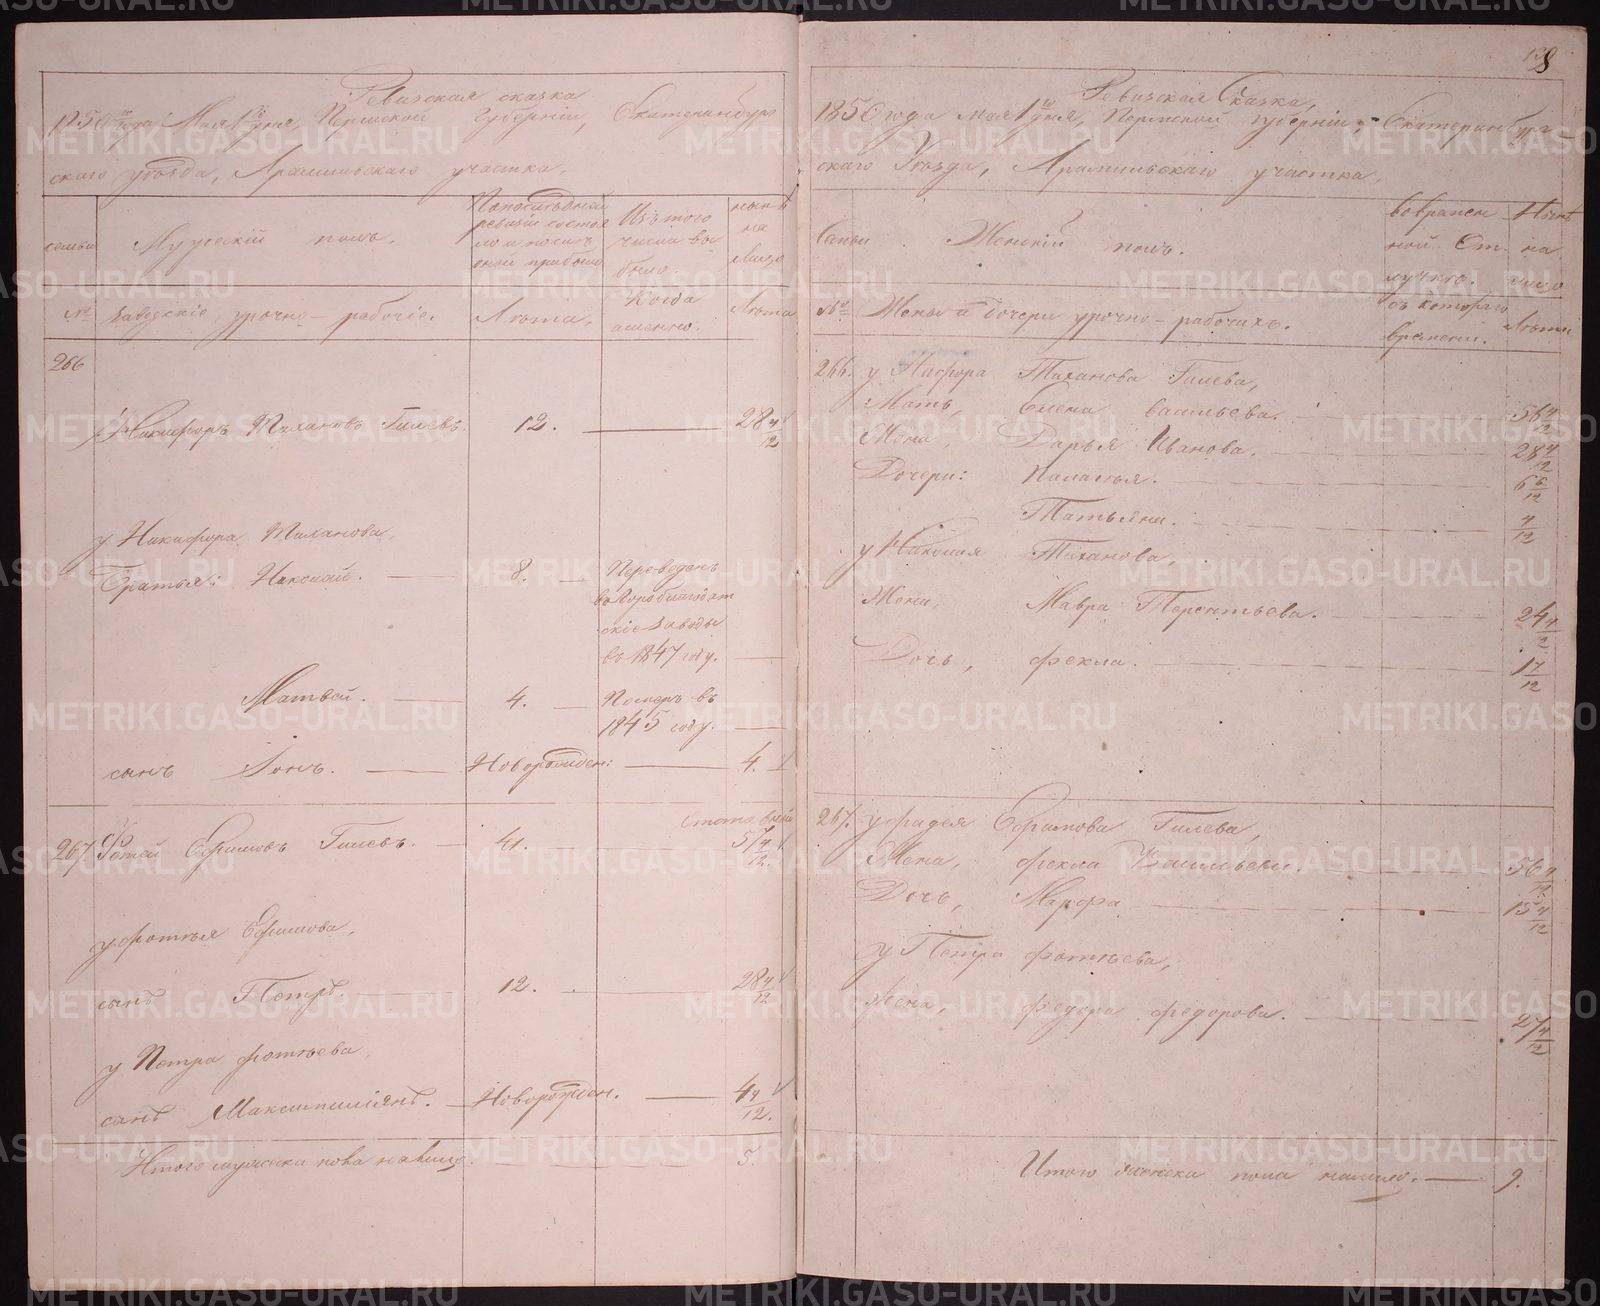 138
Ревизская сказка
1850 года Мая 1 дня Пермской Губернии, Екатеринбург
скаго уезда, Арамильскаго участка,
семьи
Мужеский полъ.
По последней
ревизии состоя
ло и после
оной прибыло
Изъ того
числа вы
было.
ныне
на
лицо
№
Заводские урочно-рабочие.
Лета,
Когда
именно.
Лета
266
Никифоръ Тихановъ Гилевъ. 12. 28 4/12
у Никифора Тиханова,
Братья: Николай. 8. Переведенъ
в Гороблагодат
ские Заводы
въ 1847 году.
Матвей. 4. Померъ въ
1845 году.
сынъ Новорожден: 4.
267 Фотей Ефимовъ Гилевъ. 41. 57 4/12
у Фотея Ефимова,
сынъ Петръ 12. 28 4/12
у Петра Фотеева,
сынъ Максимилиянъ. Новорожден. 4 4/12.
Итого мужеска пола налицо 5.
Ревизская Сказка,
1850 года мая 1 дня, Пермской губернии, Екатеринбург
скаго Уезда, Арамильскаго участка,
Семьи
Женский полъ.
во времен
ной От
лучке.
Ныне
на
лицо
№
Жены и дочери урочно-рабочихъ.
съ котораго
времени.
Лета
266. у Тиханова Гилева,
Мать, Елена Васильева. 56 4/12
Жена, Дарья Иванова. 28 4/12
Дочери: Палагья. 6 6/12
Татьяна. 4/12
у Николая Тиханова,
Жена, Мавра Терентьева. 24 4/12
Дочь, Фекла. 1 7/12
267. у Фадея Ефимова Гилева,
Жена, Фекла Васильева. 56 4/12
Дочь, Марфа 15 4/12
у Петра Фотеева,
Жена, Федора Федорова. 27 4/12
Итого женска пола налицо. 9.
METRIKI.GASO-URAL.RU